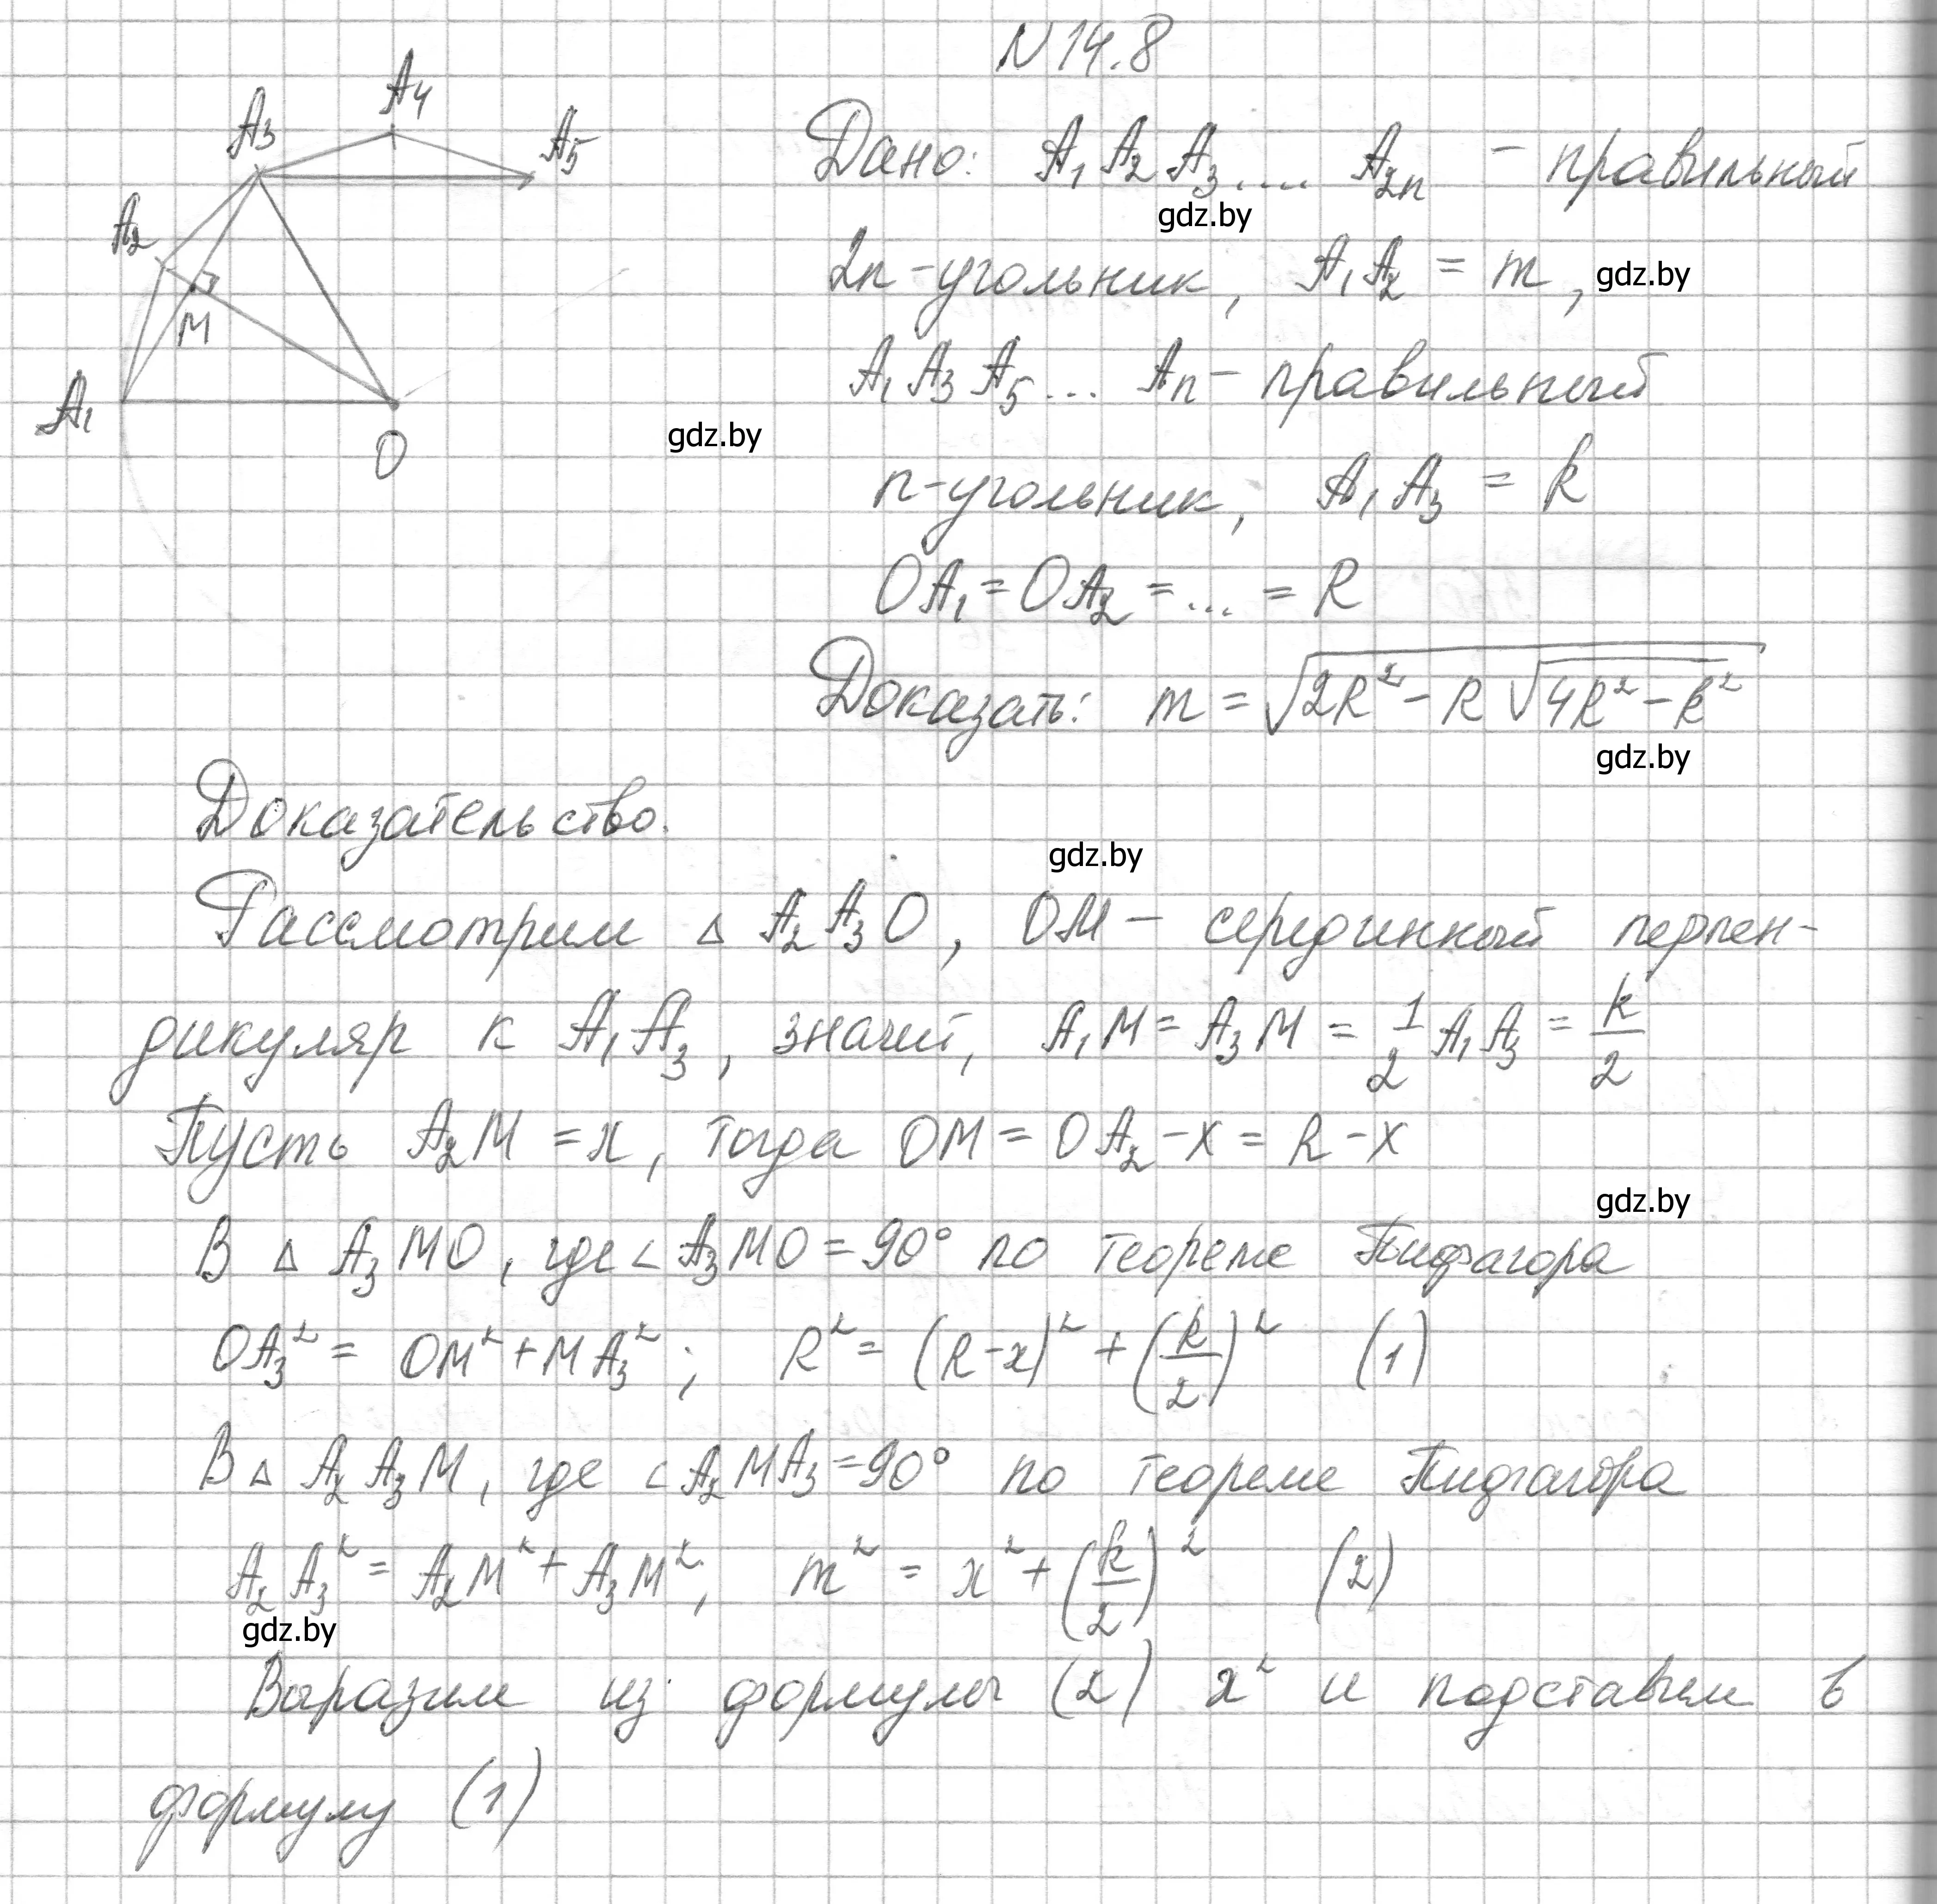 N 14.8
A3 A4 A5
A2
M
A1
O
Дано: A₁A₂A₃.... A₂ₙ - правильный
gdz.by
2n-угольник, A₁A₂ = m, gdz.by
A₁A₃A₅... Aₙ - правильный
gdz.by
n-угольник, A₁A₃ = k
OA₁ = OA₂ = ... = R
Доказать: m = √(2R² - R√(4R² - k²))
gdz.by
Доказательство.
gdz.by
Рассмотрим △ A₂A₃O, OM - серединный перпен-
дикуляр к A₁A₃, значит, A₁M = A₃M = 1/2 A₁A₃ = k/2
Пусть A₂M = x, тогда OM = OA₂ - x = R - x
gdz.by
В △ A₃MO, где ∠A₃MO = 90° по теореме Пифагора
OA₃² = OM² + MA₃²; R² = (R - x)² + (k/2)² (1)
В △ A₂A₃M, где ∠A₂MA₃ = 90° по теореме Пифагора
A₂A₃² = A₂M² + A₃M²; m² = x² + (k/2)² (2)
gdz.by
Выразим из формулы (2) x² и подставим в
формулу (1)